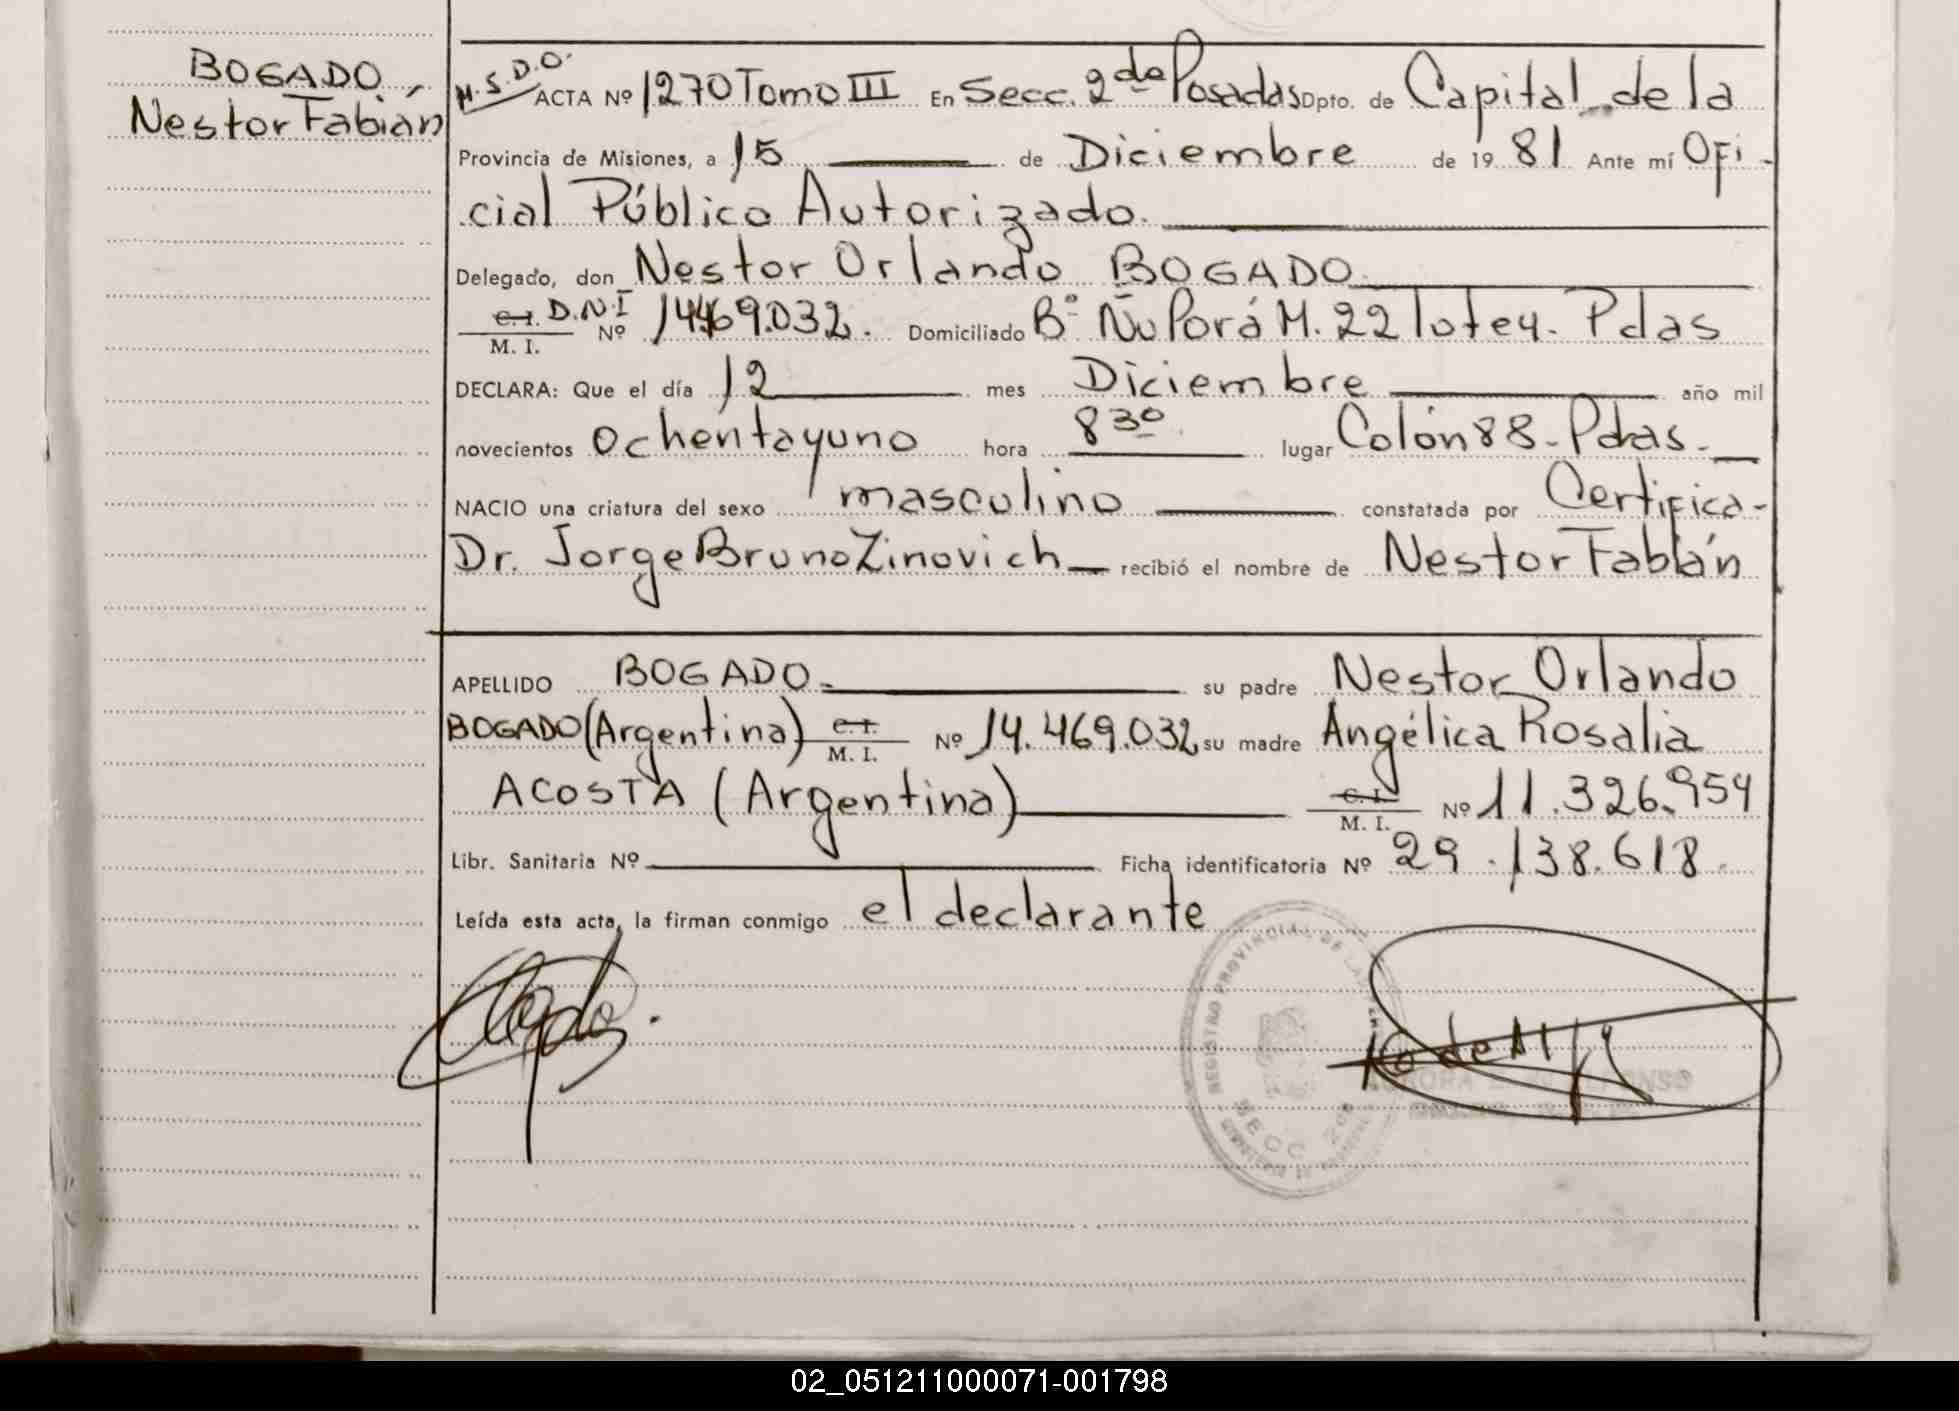 BOGADO,
Nestor Fabián
M.S.D.O.
ACTA Nº 1270 Tomo III En Secc. 2da Posadas Dpto. de Capital de la
Provincia de Misiones, a 15 de Diciembre de 1981 Ante mí Ofi-
cial Público Autorizado.
Delegado, don Nestor Orlando BOGADO
C.I. D.N.I
M. I. Nº 14.469.032. Domiciliado Bº Ñu Porá M. 22 lote 4. Pdas
DECLARA: Que el día 12 mes Diciembre año mil
novecientos ochentayuno hora 830 lugar Colón 88-Pdas.
NACIO una criatura del sexo masculino constatada por Certifica-
Dr. Jorge Bruno Zinovich recibió el nombre de Nestor Fabián
APELLIDO BOGADO su padre Nestor Orlando
BOGADO (Argentina) C.I. M. I. Nº 14.469.032 su madre Angélica Rosalia
ACOSTA (Argentina) C.I. M. I. Nº 11.326.954
Libr. Sanitaria Nº Ficha identificatoria Nº 29.138.618.
Leída esta acta, la firman conmigo el declarante
REGISTRO PROVINCIAL DE LAS
SECC 2da
02_051211000071-001798